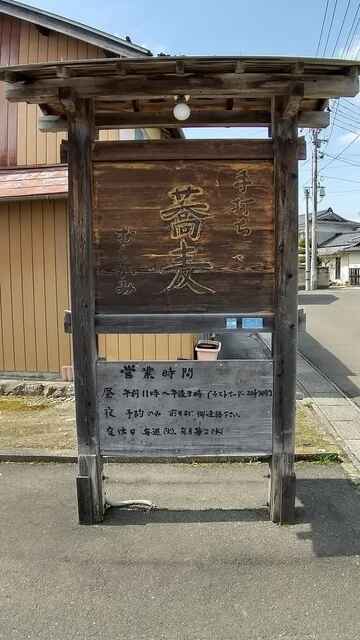 手打ち
蕎麦
むらかみ
営業時間
昼 午前11時～午後3時(ラストオーダー2時30分)
夜 予約のみ 前日まで御連絡下さい。
定休日 毎週(火)、毎月第2(水)